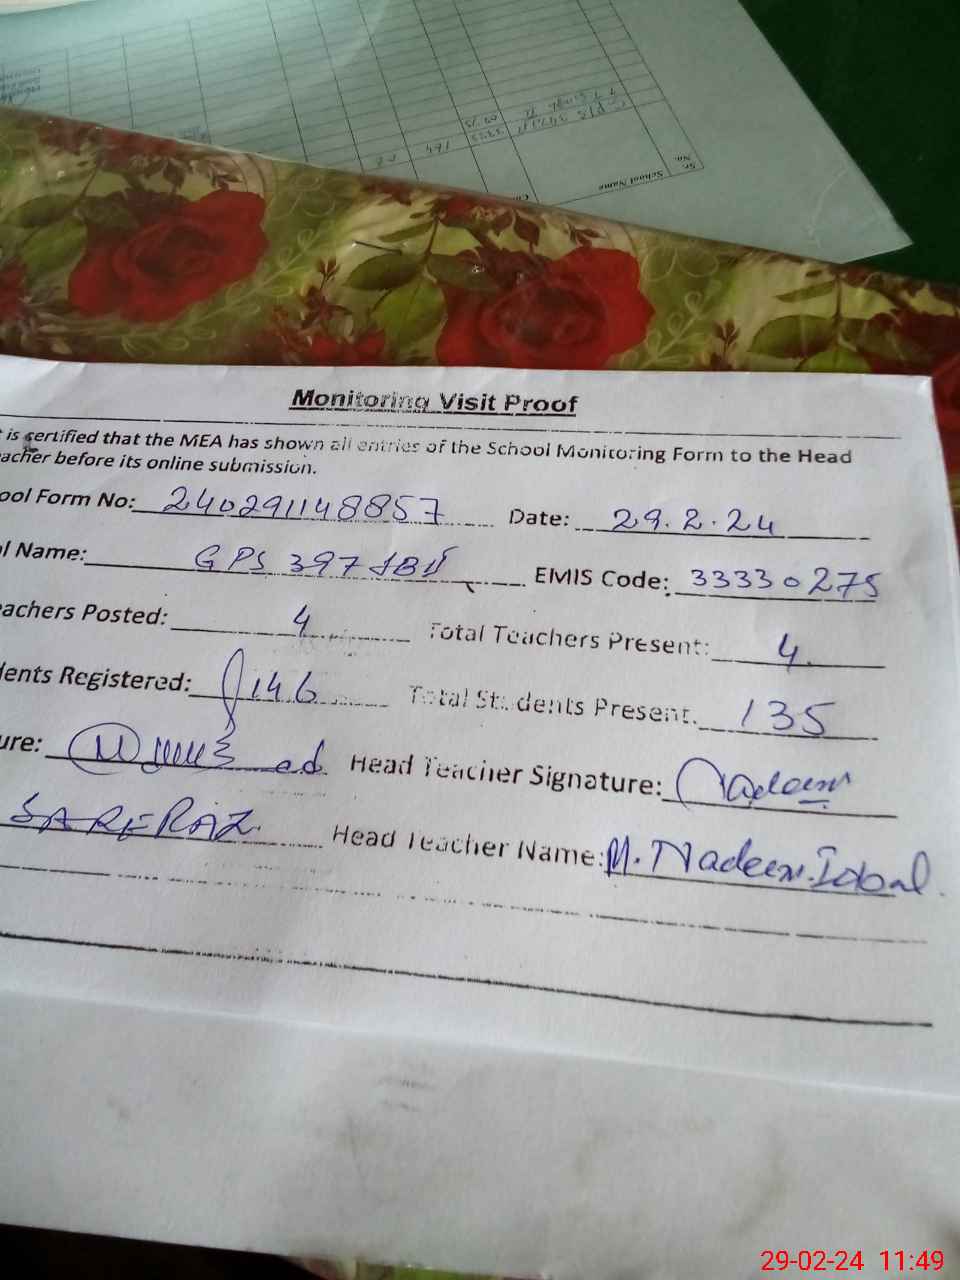 Sr. No.
School Name
164
Monitoring Visit Proof
is certified that the MEA has shown all entries of the School Monitoring Form to the Head
acher before its online submission.
ool Form No: 240291148857 Date: 29.2.24
l Name: GPS 397 JB EMIS Code: 33330275
eachers Posted: 4 Total Teachers Present: 4
dents Registered: 146 Total Students Present: 135
ure: Head Teacher Signature: Nadeem
SARFRAZ Head Teacher Name: M. Nadeem Iqbal
29-02-24 11:49